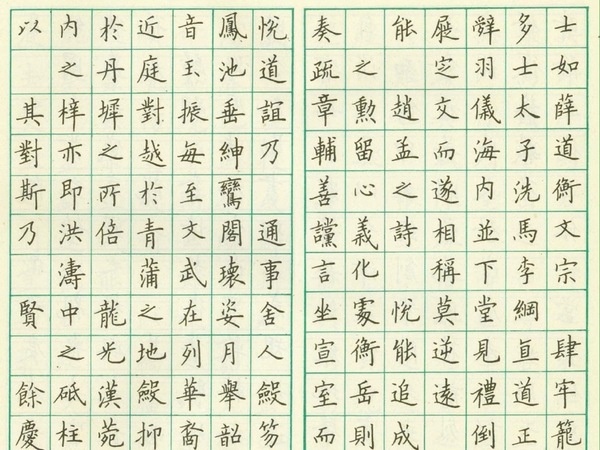 士如薛道衡文宗肆牢籠
多士太子洗馬李綱直道正
辭羽儀海內並下堂見禮倒
屣定交而遂相稱莫逆遠
能趙孟之詩悅能追成
之勲留心義化處衡岳則
奏疏章輔善讜言坐宣室而
悅道誼乃通事舍人斂笏
鳳池垂紳鸞閣瓌姿月舉韶
音玉振每至文武在列華裔
近庭對越於青蒲之地斂抑
於丹墀之所倍龍光漢苑
內之梓亦即洪濤中之砥柱
以其對斯乃賢餘慶